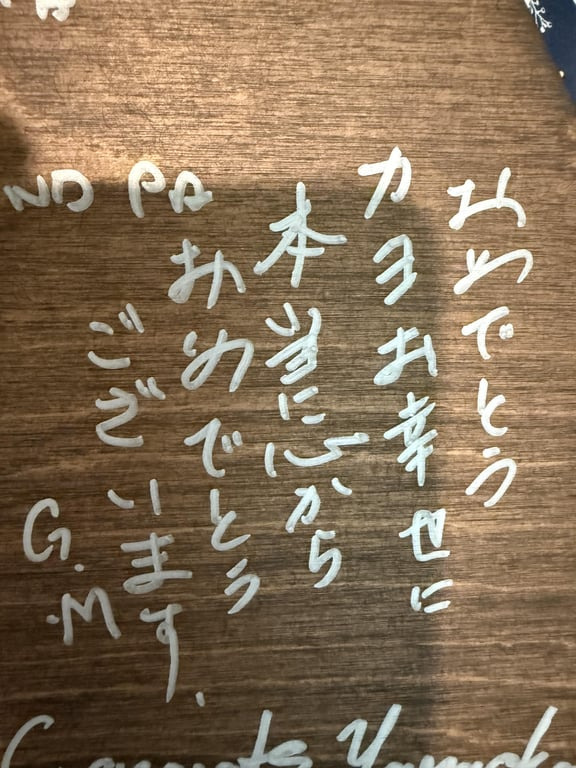 おめでとう
カヨお幸せに
本当に心から
おめでとう
ございます.
G.M
ND PA